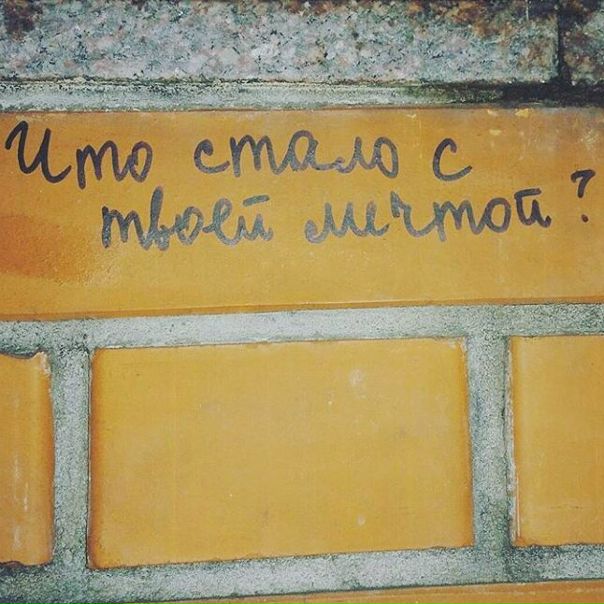 Что стало с
твоей мечтой?